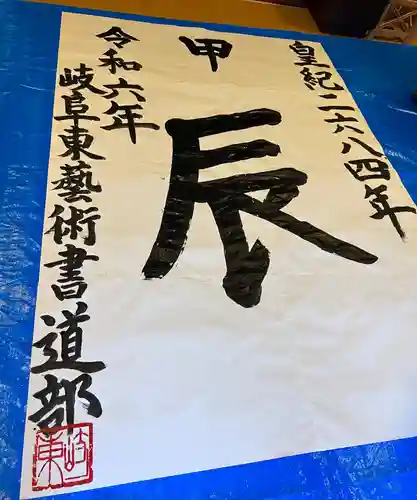 皇紀二六八四年
甲
辰
令和六年
岐阜東藝術書道部
岐東